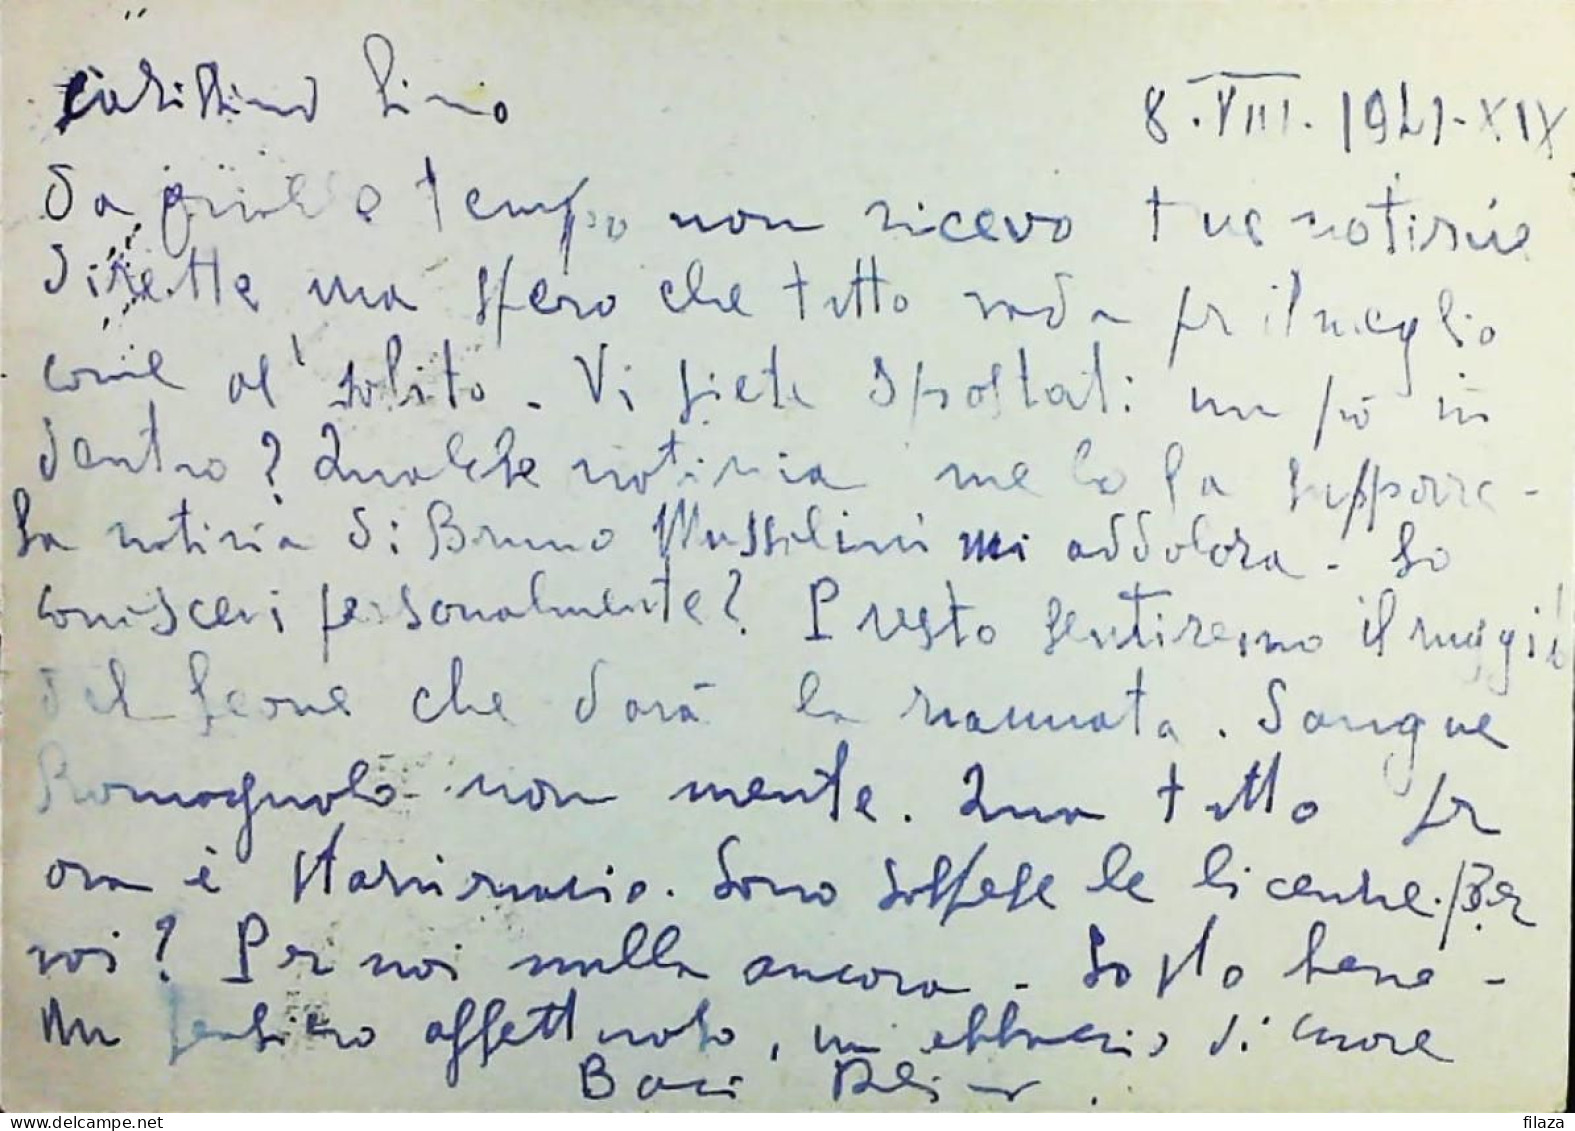 Carissimo Lino
8.VIII.1941-XIX
Da qualche tempo non ricevo tue notizie
dirette ma spero che tutto vada per il meglio
come al solito. Vi siete spostati un pò in
dentro? Qualche notizia me lo fa supporre -
La notizia di Bruno Mussolini mi addolora - Lo
conoscevi personalmente? Presto sentiremo il ruggito
del leone che darà la zannata. Sangue
Romagnolo non mente. Qua tutto per
ora è stazionario. Sono sospese le licenze. Per
voi? Per noi nulla ancora - Io sto bene -
Un pensiero affettuoso, un abbraccio di cuore
Baci
filaza